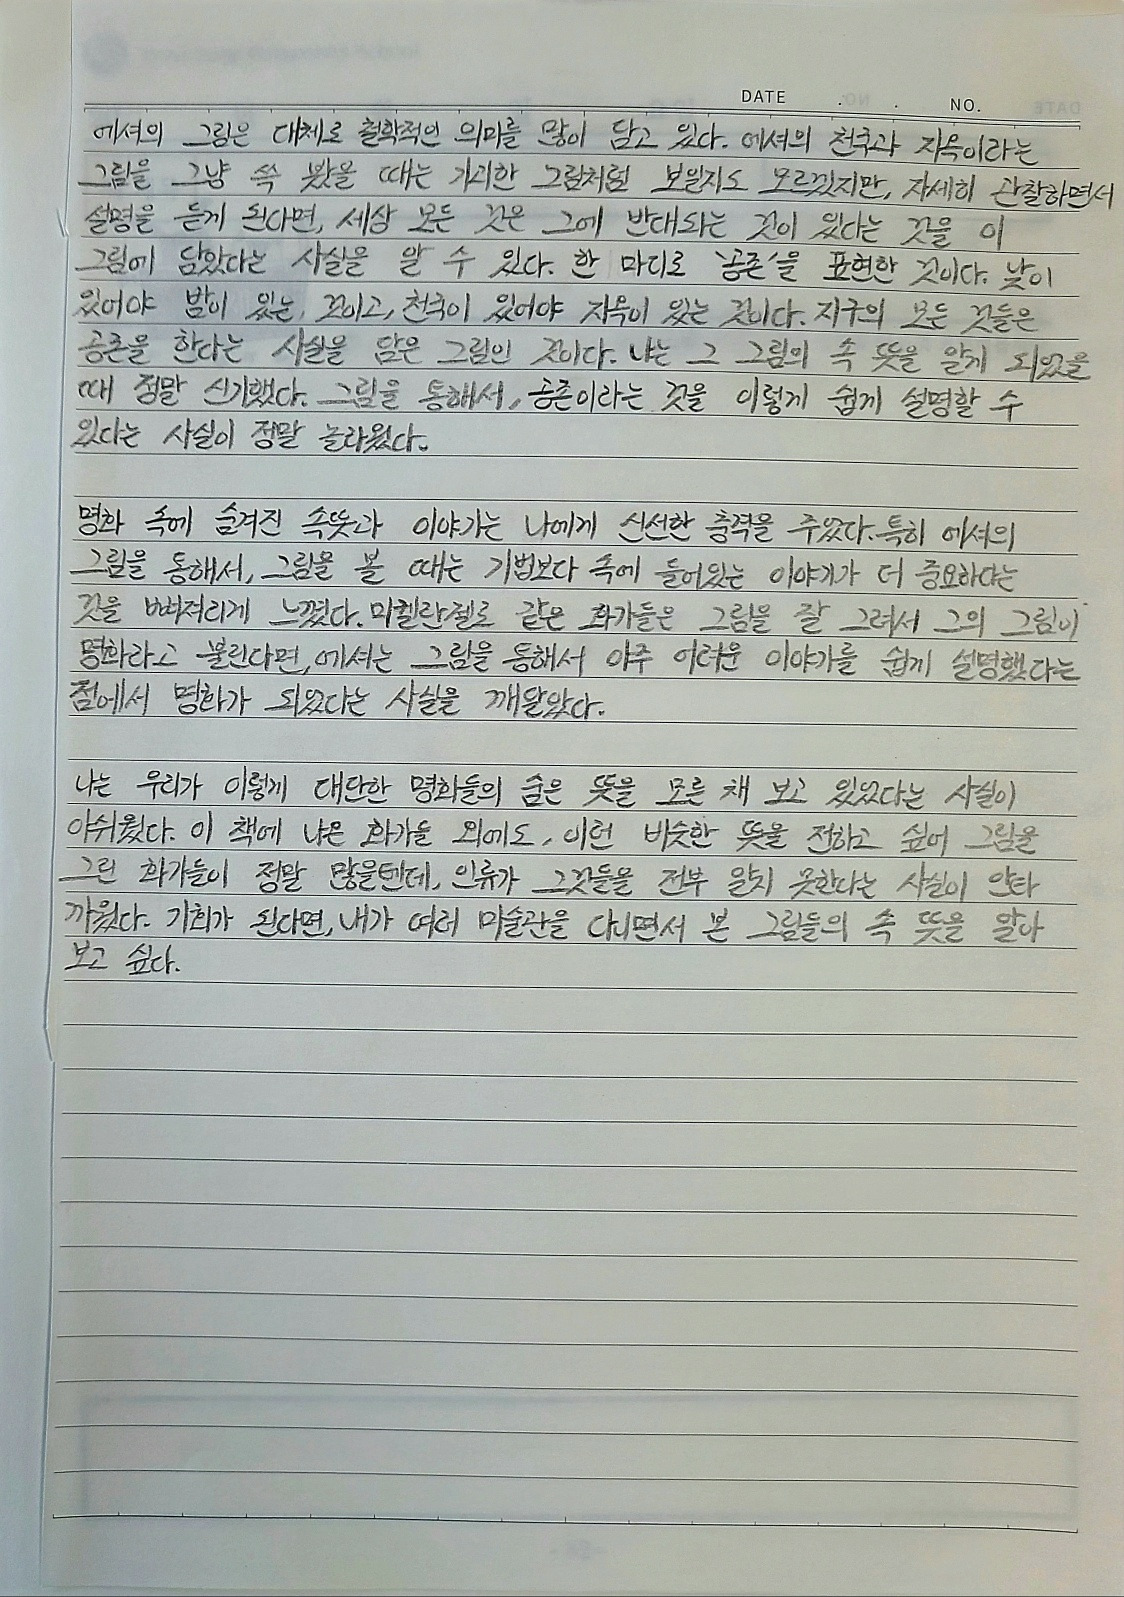 DATE . . NO.
에셔의 그림은 대체로 철학적인 의미를 많이 담고 있다. 에셔의 천국과 지옥이라는
그림을 그냥 쓱 봤을 때는 기괴한 그림처럼 보일지도 모르겠지만, 자세히 관찰하면서
설명을 듣게 된다면, 세상 모든 것은 그에 반대되는 것이 있다는 것을 이
그림에 담았다는 사실을 알 수 있다. 한 마디로 '공존'을 표현한 것이다. 낮이
있어야 밤이 있는 것이고, 천국이 있어야 지옥이 있는 것이다. 지구의 모든 것들은
공존을 한다는 사실을 담은 그림인 것이다. 나는 그 그림의 속 뜻을 알게 되었을
때 정말 신기했다. 그림을 통해서, 공존이라는 것을 이렇게 쉽게 설명할 수
있다는 사실이 정말 놀라웠다.
명화 속에 숨겨진 속뜻과 이야기는 나에게 신선한 충격을 주었다. 특히 에셔의
그림을 통해서, 그림을 볼 때는 기법보다 속에 들어있는 이야기가 더 중요하다는
것을 뼈저리게 느꼈다. 미켈란젤로 같은 화가들은 그림을 잘 그려서 그의 그림이
명화라고 불린다면, 에셔는 그림을 통해서 아주 어려운 이야기를 쉽게 설명했다는
점에서 명화가 되었다는 사실을 깨달았다.
나는 우리가 이렇게 대단한 명화들의 숨은 뜻을 모른 채 보고 있었다는 사실이
아쉬웠다. 이 책에 나온 화가들 외에도, 이런 비슷한 뜻을 전하고 싶어 그림을
그린 화가들이 정말 많을텐데, 인류가 그것들을 전부 알지 못한다는 사실이 안타
까웠다. 기회가 된다면, 내가 여러 미술관을 다니면서 본 그림들의 속 뜻을 알아
보고 싶다.